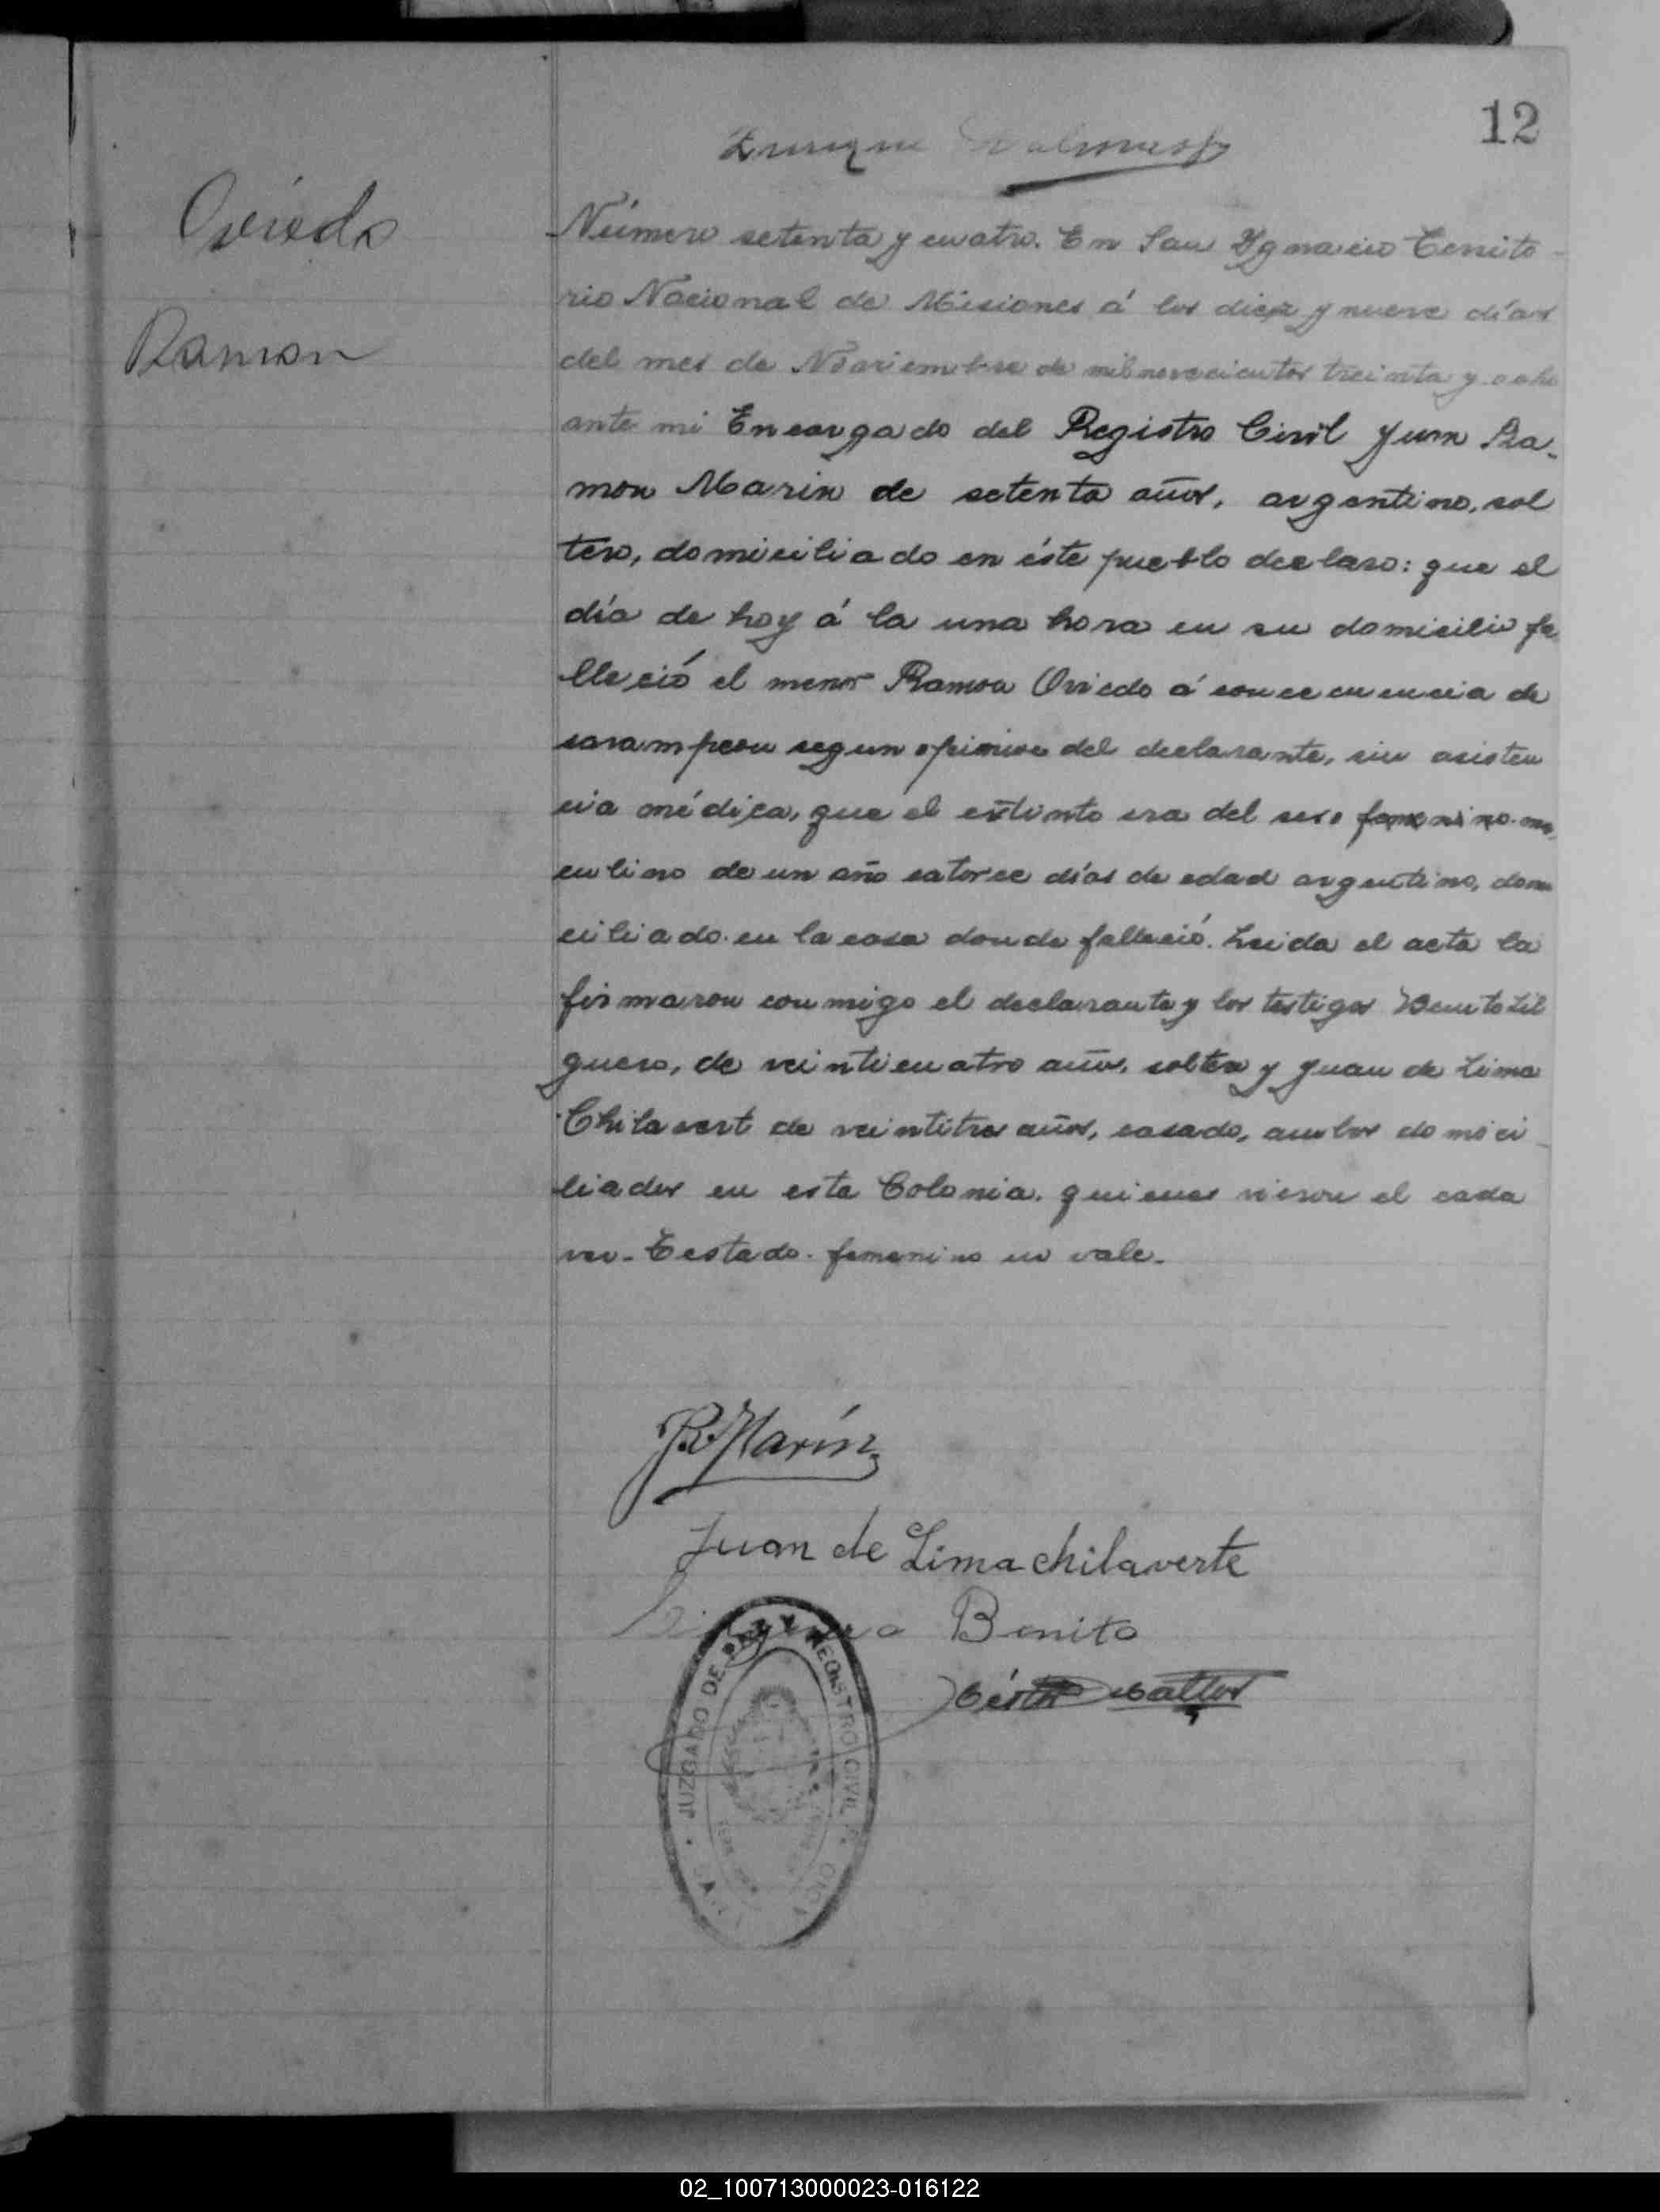 12
Enrique
Oviedo
Ramon
Número setenta y cuatro. En San Ygnacio Territo-
rio Nacional de Misiones á los diez y nueve días
del mes de Noviembre de mil novecientos treinta y ocho
ante mi Encargado del Registro Civil Juan Ra-
mon Marin de setenta años, argentino, sol
tero, domiciliado en éste pueblo declaro: que el
día de hoy á la una hora en su domicilio fa
lleció el menor Ramon Oviedo á concecuencia de
sarampeon segun opinion del declarante, sin asisten
cia médica, que el extinto era del sexo femenino. mas
culino de un año catorce días de edad argentino, domi
ciliado en la casa donde falleció. Leida el acta la
firmaron conmigo el declarante y los testigos Benito Sil
guero, de veinticuatro años, soltero y Juan de Lima
Chilavert de veintitres años, casado, ambos domici-
liados en esta Colonia. quienes vieron el cada
ver. Testado. femenino no vale.
JRMarín
Juan de Lima chilaverte
Benito
JUZGADO DE PAZ Y REGISTRO CIVIL
02_100713000023-016122